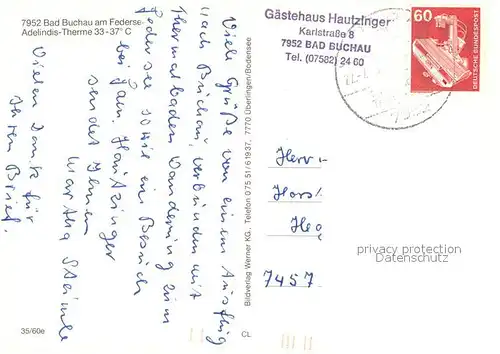 7952 Bad Buchau am Federsee
Adelindis-Therme 33-37° C
Viele Grüße von einem Ausflug
nach Buchau, verbunden mit
Thermalbaden Wanderung zum
Federsee sowie ein Besuch
bei Fam. Hautzinger
sendet Ihnen
Martha Steimle
Vielen Dank für
Ihren Brief.
35/60e
Bildverlag Werner KG., Telefon 075 51/61937, 7770 Überlingen/Bodensee
CL
Gästehaus Hautzinger
Karlstraße 8
7952 BAD BUCHAU
Tel. (07582) 24 60
60
DEUTSCHE BUNDESPOST
Herr
Horst
He
7457
privacy protection
Datenschutz